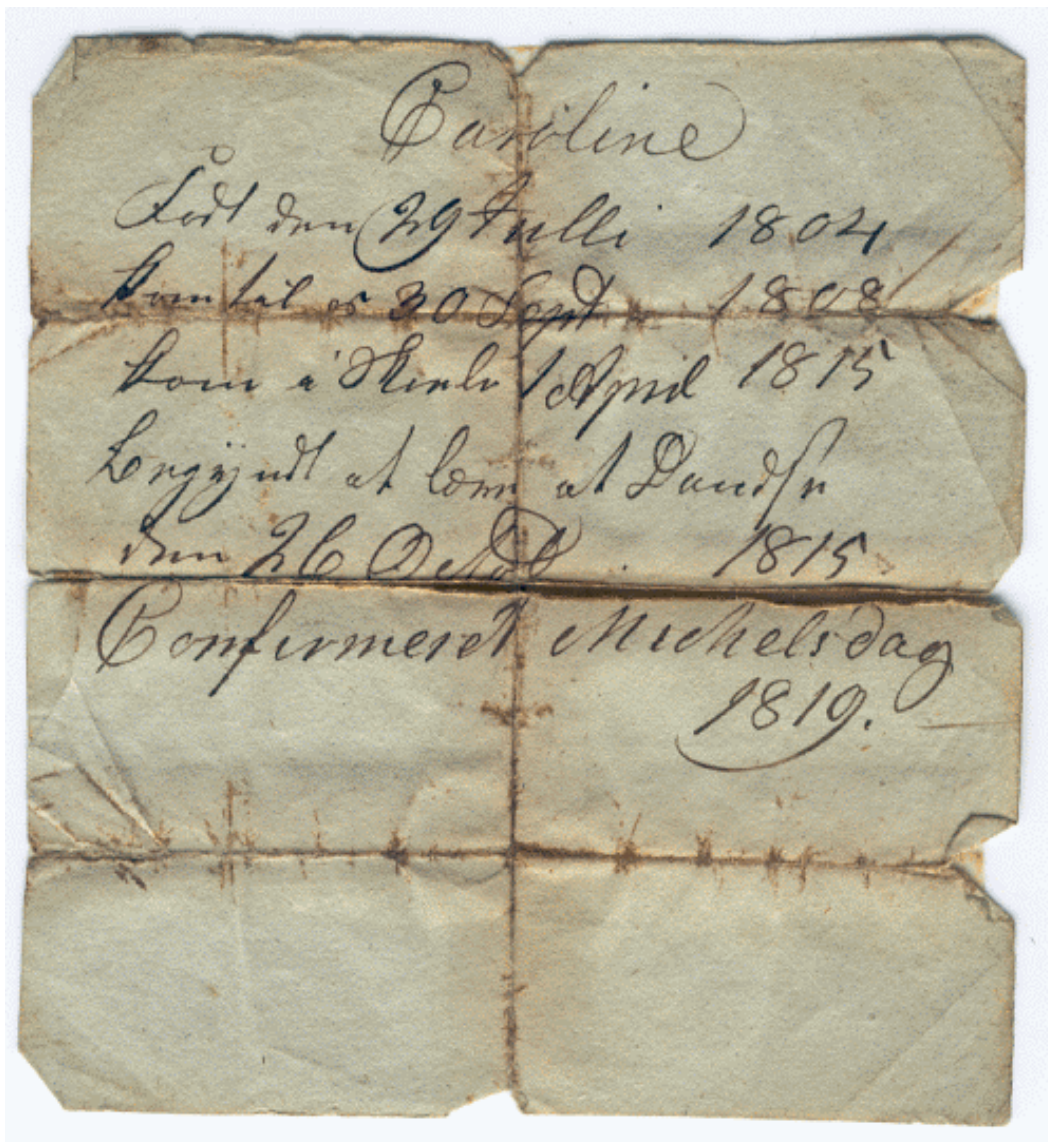 Caroline
Født den 29 Julli 1804
kom til os 30 Sept 1808
kom i Skole 1 April 1815
begÿndt at lære at Dandse
den 26 Octob. 1815
Confirmeret Michelsdag
1819.